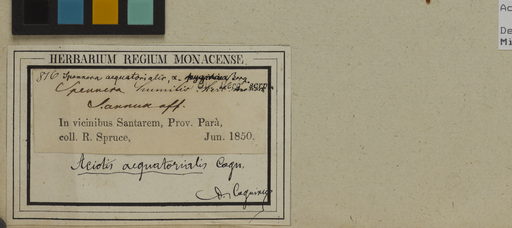 Ac
De
Mi
HERBARIUM REGIUM MONACENSE.
816 Spennera aequatorialis,
Spennera humilis
aff.
In vicinibus Santarem, Prov. Parà,
coll. R. Spruce, Jun. 1850.
Aciotis aequatorialis Cogn.
A. Cogniaux